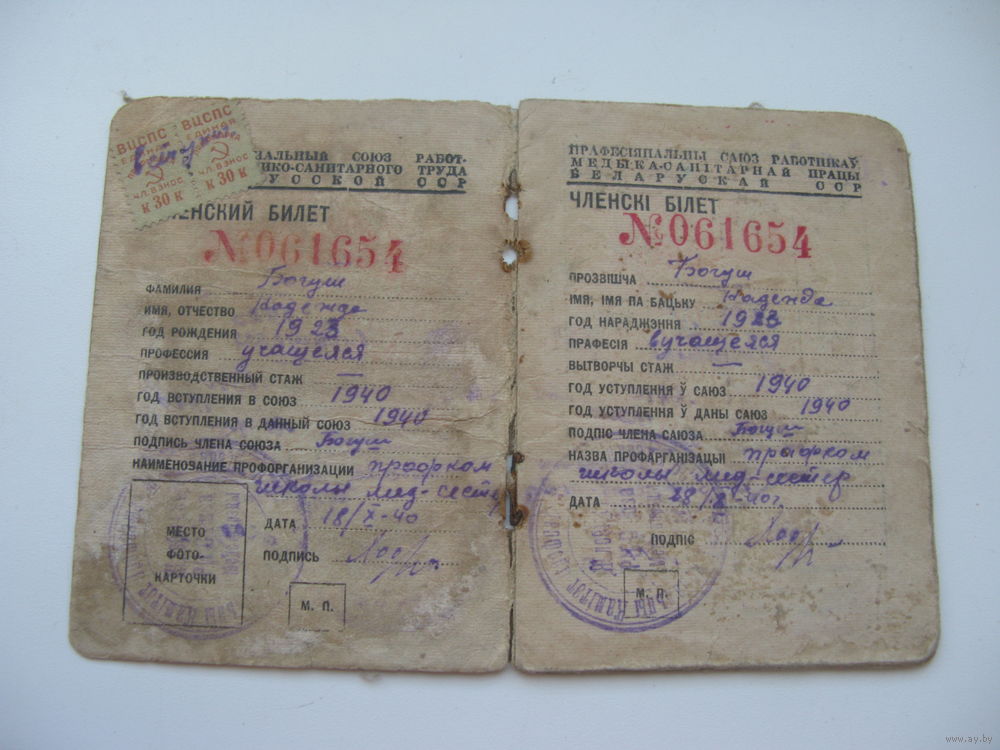 ВЦСПС ВЦСПС
ЕДИНАЯ
ЧЛ. ВЗНОС ЧЛ. ВЗНОС
К 30 К К 30 К
НАЛЬНЫЙ СОЮЗ РАБОТ-
ИКО-САНИТАРНОГО ТРУДА
РУССКОЙ ССР
ЧЛЕНСКИЙ БИЛЕТ
№061654
ФАМИЛИЯ Богуш
ИМЯ, ОТЧЕСТВО Надежда
ГОД РОЖДЕНИЯ 1923
ПРОФЕССИЯ учащеяся
ПРОИЗВОДСТВЕННЫЙ СТАЖ —
ГОД ВСТУПЛЕНИЯ В СОЮЗ 1940
ГОД ВСТУПЛЕНИЯ В ДАННЫЙ СОЮЗ 1940
ПОДПИСЬ ЧЛЕНА СОЮЗА Богуш
НАИМЕНОВАНИЕ ПРОФОРГАНИЗАЦИИ профком
школы мед-сестер
МЕСТО
ФОТО-
КАРТОЧКИ
ДАТА 18/X-40
ПОДПИСЬ
М. П.
ПРАФЕСІЯНАЛЬНЫ САЮЗ РАБОТНІКАЎ
МЕДЫКА-САНІТАРНАЙ ПРАЦЫ
БЕЛАРУСКАЙ ССР
ЧЛЕНСКІ БІЛЕТ
№061654
ПРОЗВІШЧА Богуш
ІМЯ, ІМЯ ПА БАЦЬКУ Надежда
ГОД НАРАДЖЭННЯ 1923
ПРАФЕСІЯ вучащеяся
ВЫТВОРЧЫ СТАЖ —
ГОД УСТУПЛЕННЯ Ў САЮЗ 1940
ГОД УСТУПЛЕННЯ Ў ДАНЫ САЮЗ 1940
ПОДПІС ЧЛЕНА САЮЗА Богуш
НАЗВА ПРОФАРГАНІЗАЦЫІ прафком
школы мед-сестер
ДАТА 18/X-40г.
ПОДПІС
М. П.
www.ay.by